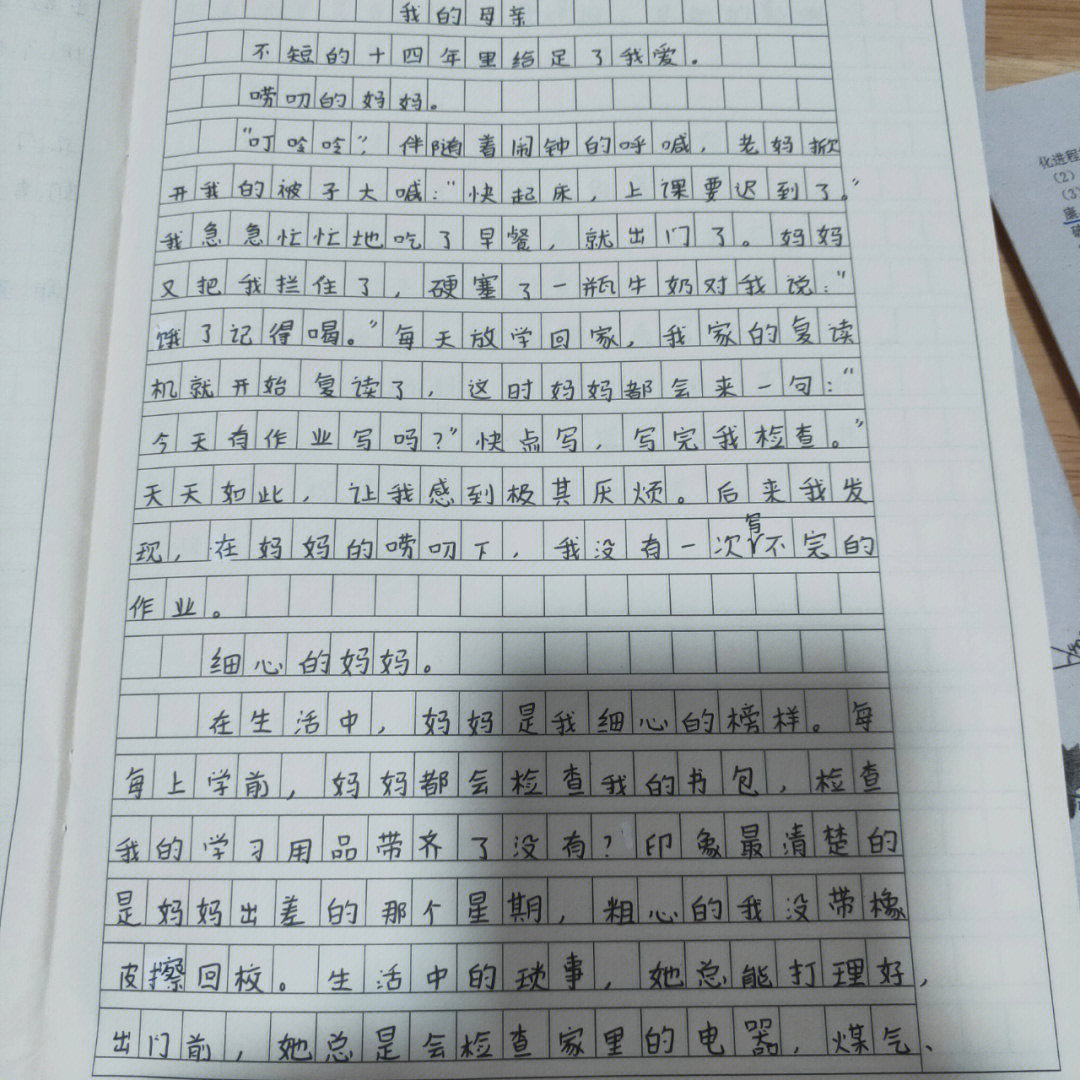 我的母亲
不短的十四年里给足了我爱。
唠叨的妈妈。
"叮呤呤",伴随着闹钟的呼喊,老妈掀
开我的被子大喊:"快起床,上课要迟到了。"
我急急忙忙地吃了早餐,就出门了。妈妈
又把我拦住了,硬塞了一瓶牛奶对我说:"
饿了记得喝。"每天放学回家,我家的复读
机就开始复读了,这时妈妈都会来一句:"
今天有作业写吗?"快点写,写完我检查。"
天天如此,让我感到极其厌烦。后来我发
现,在妈妈的唠叨下,我没有一次写不完的
作业。
细心的妈妈。
在生活中,妈妈是我细心的榜样。每
每上学前,妈妈都会检查我的书包,检查
我的学习用品带齐了没有?印象最清楚的
是妈妈出差的那个星期,粗心的我没带橡
皮擦回校。生活中的琐事,她总能打理好,
出门前,她总是会检查家里的电器,煤气、
化进程
(2)
(3